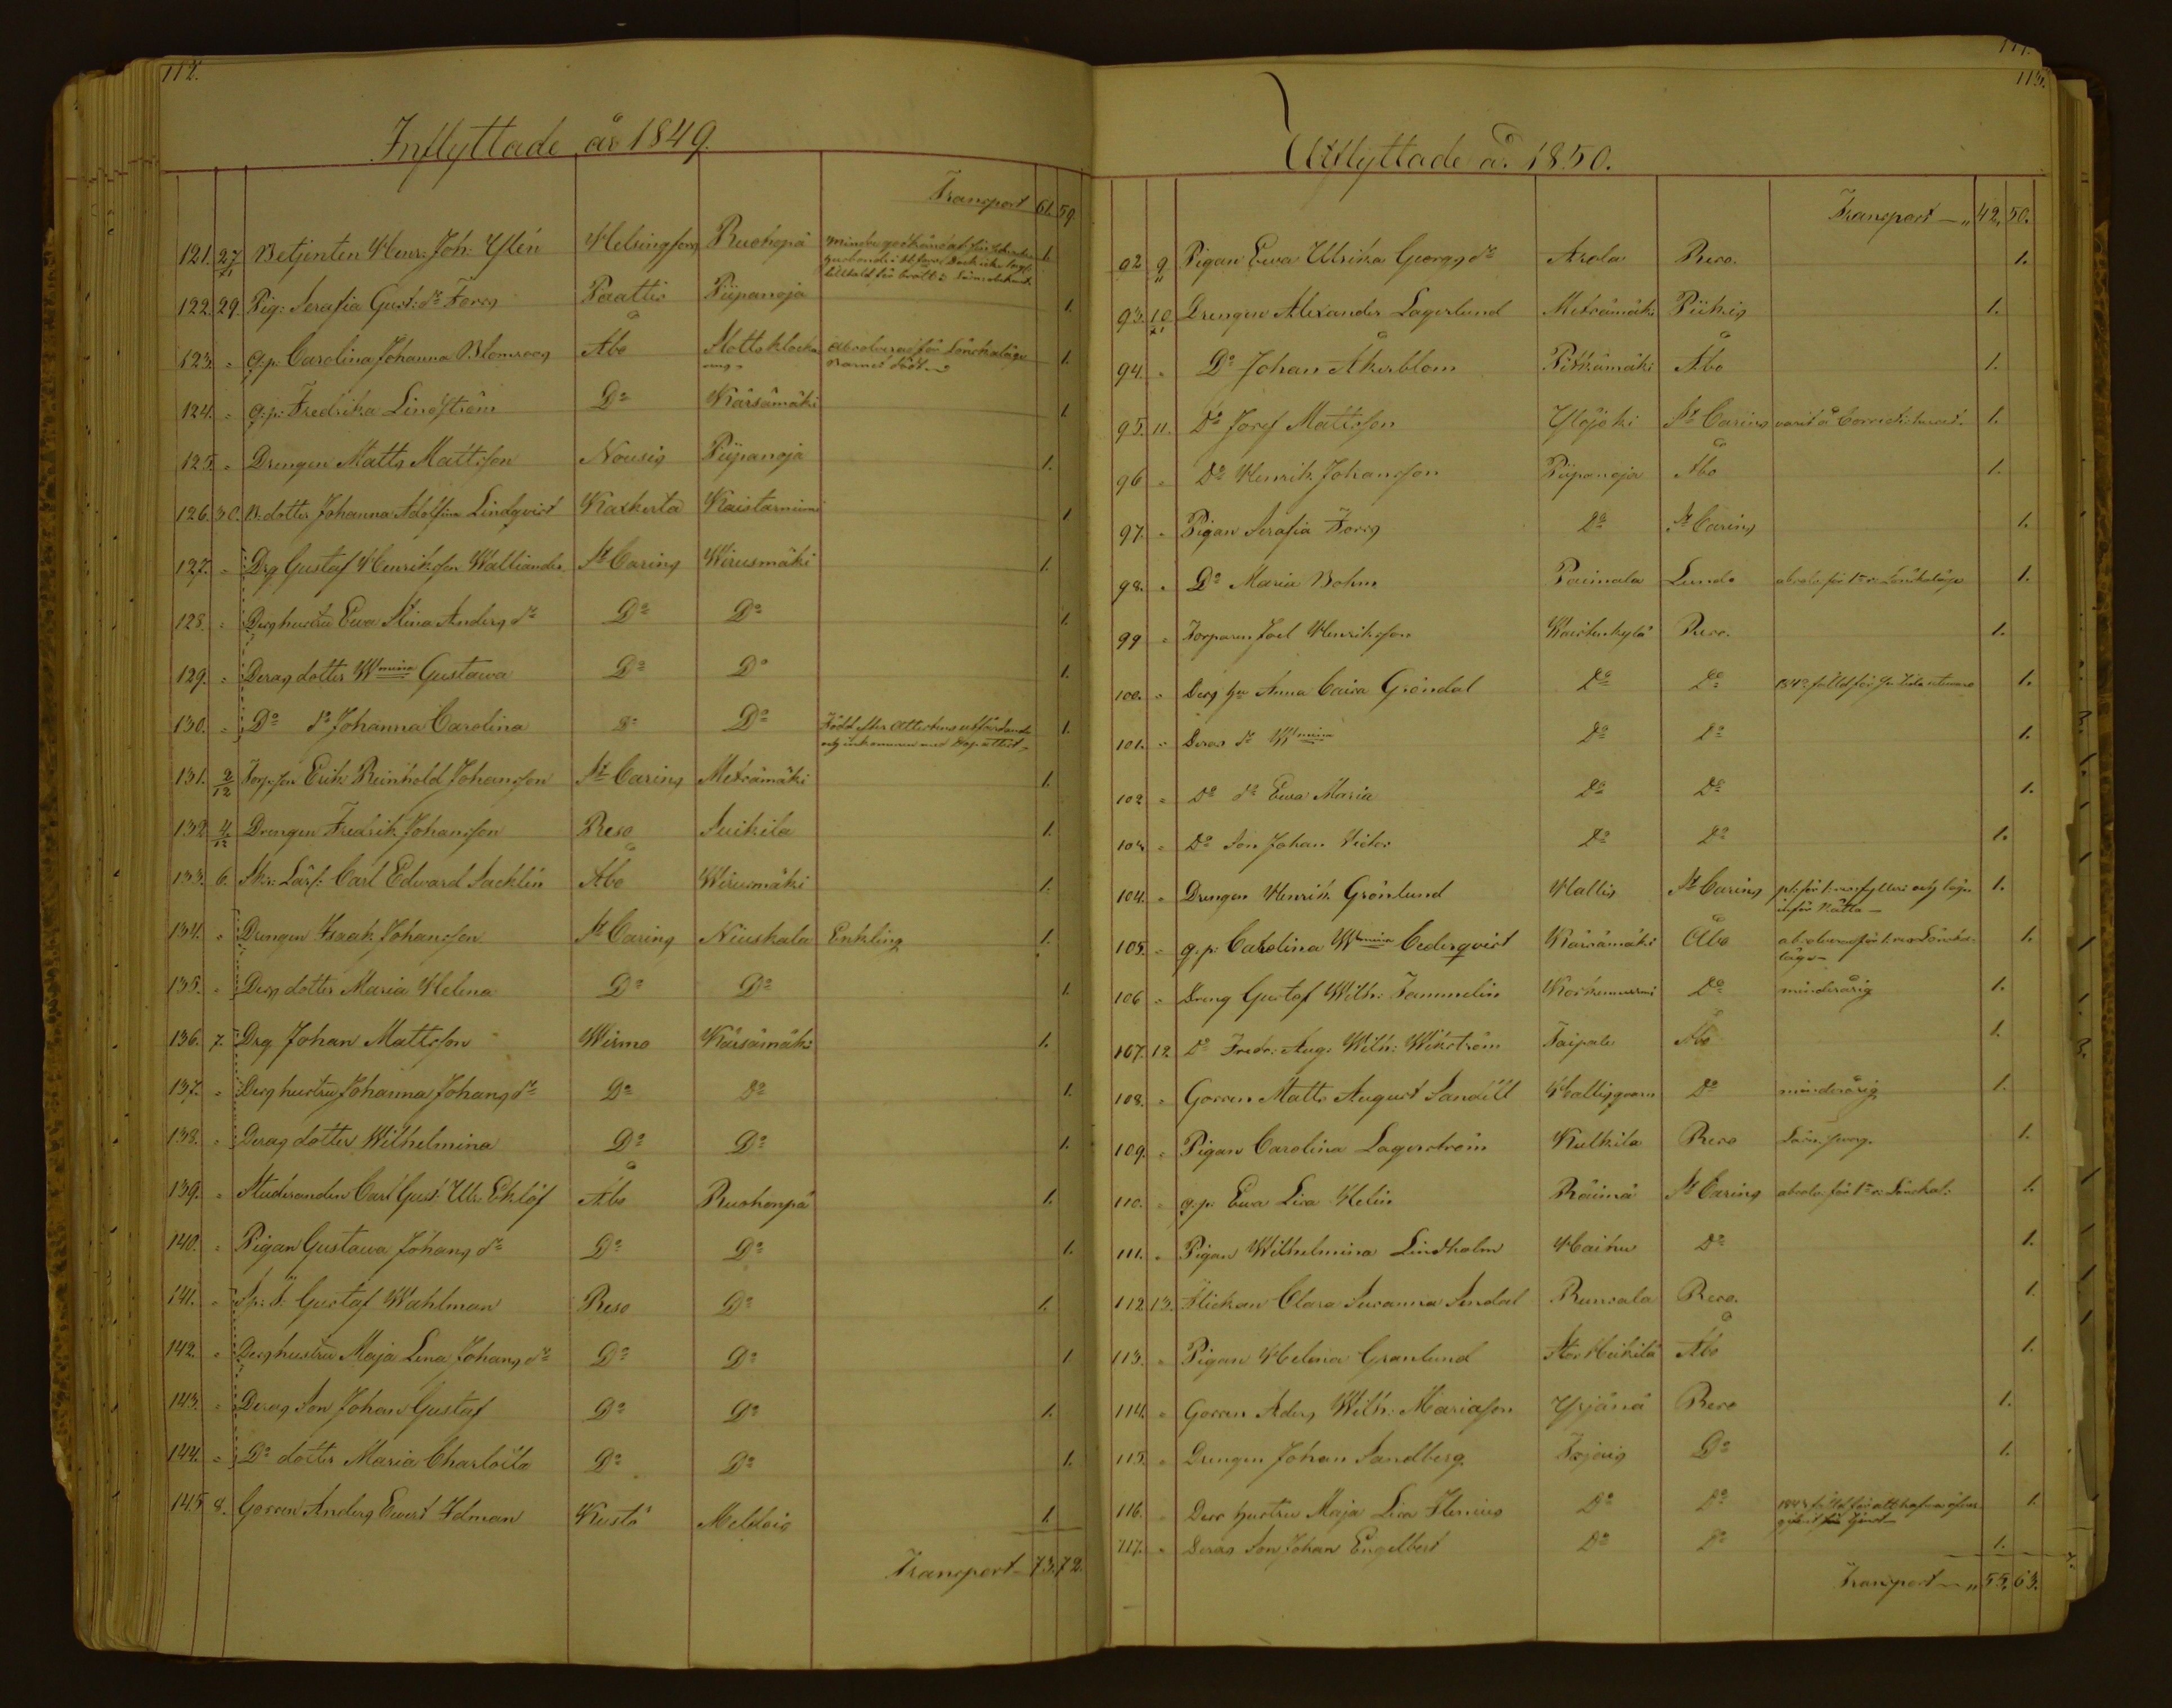 112.
Inflyttade år 1849.
Transport 61. 59.
121. 27/11 Betjenten Henr: Joh: Ylén Helsingfors Ruohopä 1.
122. 29. Pig: Serafia Gust: dr Forss Paattis Piipanoja 1.
123. " q.p. Carolina Johanna Blomroos Åbo Slottsklocka absolverad för Lönskaläge 1.
barnet dödt
124. " q.p. Fredrika Lindström Do Kärsämäki 1.
125. " Drengen Matts Mattsson Nousis Piipanoja 1.
126. 30. B. dotter Johanna Adolfina Lindqvist Kaxkerta Kaistarniemi 1
127. " Drg Gustaf Henriksson Walliander St Carins Wirusmäki 1.
128. " Dess hustru Ewa Stina Anders dr Do Do 1.
129. " Deras dotter Wmina Gustawa Do Do 1.
130. " Do dr Johanna Carolina Do Do Född efter attestens utfärdande 1.
och inkommen med Dop attest
131. 2/12 Torp.son Erik Reinhold Johansson St Carins Metsämäki 1.
132 4/12 Drengen Fredrik Johansson Reso Suikila 1.
133. 6. Sk: Lärl: Carl Edward Sacklén Åbo Wirusmäki 1.
134. " Drengen Isaak Johansson St Carins Niuskala Enkling 1.
135. " Dess dotter Maria Helena Do Do 1.
136. 7. Drg Johan Mattsson Wirmo Kärsämäki 1.
137. " Dess hustru Johanna Johans dr Do Do 1.
138. " Deras dotter Wilhelmina Do Do 1.
139. " Studeranden Carl Gust: Ulr: Eklöf Åbo Ruohonpä 1.
140. " Pigan Gustawa Johans dr Do Do 1.
141. " Sp: S: Gustaf Wahlman Reso Do 1.
142. " Dess hustru Maja Lena Johans dr Do Do 1
143. " Deras Son Johan Gustaf Do Do 1.
144. " Do dotter Maria Charlotta Do Do 1.
145 8. Gossen Anders Ewert Idman Kustö Meldois 1.
Transport 73. 72.
113.
Utflyttade år 1850.
Transport " 42. 50.
92 9 Pigan Ewa Ulrika Georgs dr Arola Reso. 1.
93. 10 Drengen Alexander Lagerlund Metsämäki Piikis 1.
94. " Do Johan Åkerblom Pitkämäki Åbo 1.
95. 11. Do Josef Mattsson Ylöjoki St Carins varit å 1.
96 " Do Henrik Johansson Piipanoja Åbo 1.
97. " Pigan Serafia Forss Do St Carins 1.
98. " Do Maria Bohm Paimala Lundo absolv för 1a r: Lönskaläge 1.
99 " Torparen Joel Henriksson Kaistenkylä Reso. 1.
100. " Dess hu Anna Caisa Gröndal Do Do 1.
101. " Deras dr Wmina Do Do 1.
102 " Do dr Ewa Maria Do Do 1.
103 " Do Son Johan Victor Do Do 1.
104. " Drengen Henrik Grönlund Hallis St Carins pl: för 1: res fylleri och 1.
inför Rätta
105. " q.p: Carolina Wmina Cederqvist Kärsämäki Åbo absolverad för 1: res Lönska- 1.
läge
106 " Dreng Gustaf Wilh: Tammelin Korkenniemi Do minderårig 1.
107. 12 Do Fredr: Aug: Wilh: Wikström Taipale Åbo 1.
108. " Gossen Matts August Sandell Hallisqvarn Do minderårig 1.
109. " Pigan Carolina Lagerström Kulkila Reso 1.
110. " q.p: Ewa Lisa Helin Räimä St Carins absolv för 1a r: Lönskal: 1.
111. " Pigan Wilhelmina Lindholm Haihu Do 1.
112 13. Flickan Clara Susanna Sundal Runsala Reso. 1.
113. " Pigan Helena Granlund Stor Heikilä Åbo 1.
114. " Gossen Anders Wilh: Mariasson Yrjänä Reso 1.
115. " Drengen Johan Sandberg Do 1.
116. " Dess hustru Maja Lisa Do Do 1.
117. " Deras Son Johan Engelbert Do Do 1.
Transport " 55. 63.